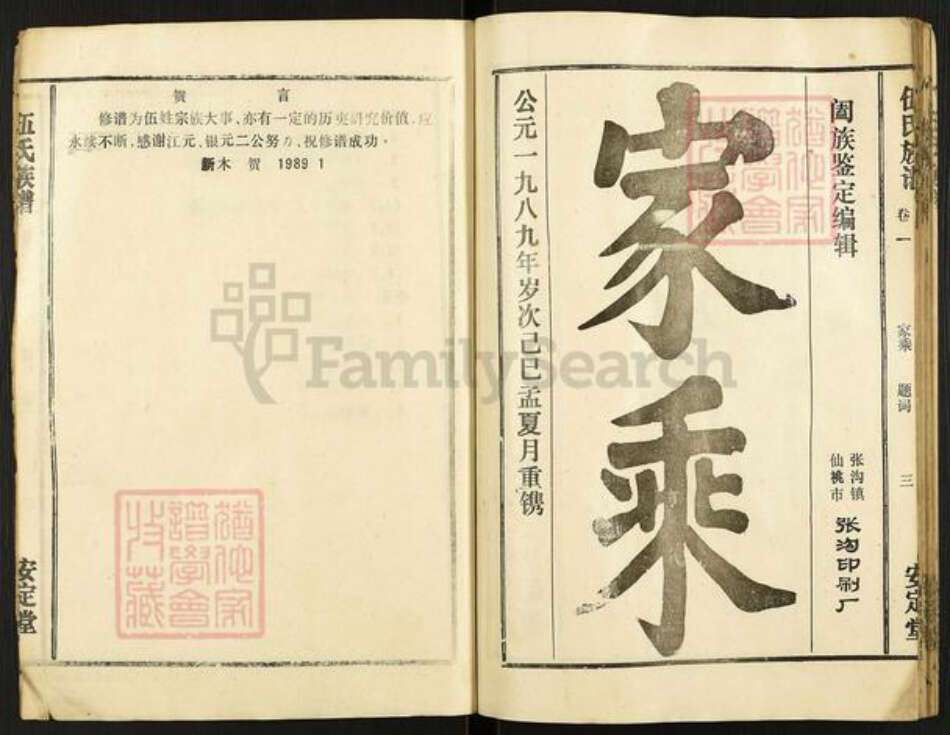 伍氏族谱
卷一
家乘 题词
三
安定堂
阖族鉴定编辑
仙桃市
张沟镇
张沟印刷厂
家乘
公元一九八九年岁次己巳孟夏月重镌
贺言
修谱为伍姓宗族大事，亦有一定的历史研究价值，应
永续不断，感谢江元、银元二公努力，祝修谱成功。
新木 贺 1989 1
伍氏族谱
安定堂
FamilySearch